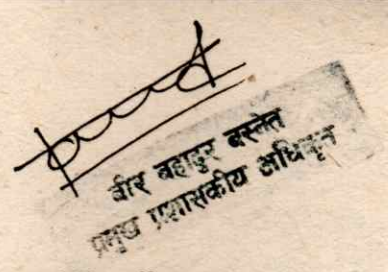 बीर बहादुर बस्नेत
प्रमुख प्रशासकीय अधिकृत